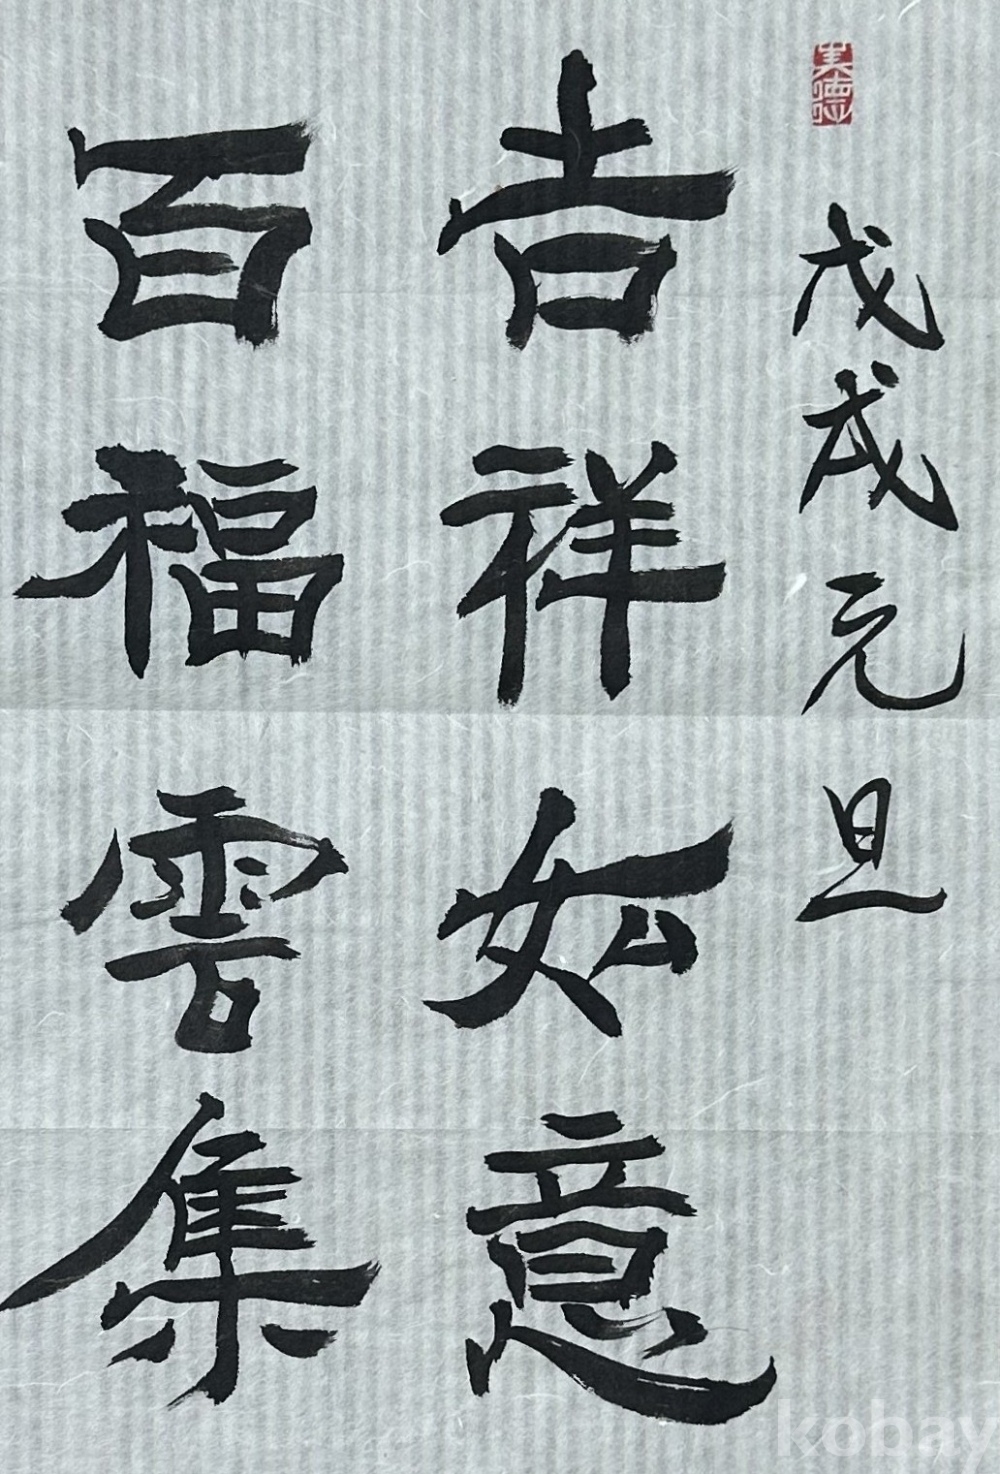 戊戌元旦
吉祥如意
百福雲集
美德
kobay